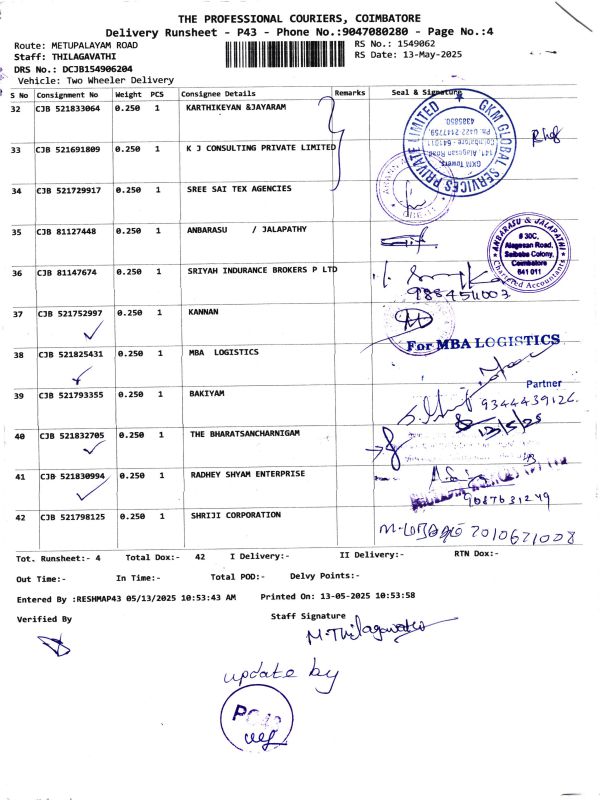 THE PROFESSIONAL COURIERS, COIMBATORE
Delivery Runsheet - P43 - Phone No.:9047080280 - Page No.:4
Route: METUPALAYAM ROAD RS No.: 1549062
Staff: THILAGAVATHI RS Date: 13-May-2025
DRS No.: DCJB154906204
Vehicle: Two Wheeler Delivery
S No Consignment No Weight PCS Consignee Details Remarks Seal & Signature
32 CJB 521833064 0.250 1 KARTHIKEYAN &JAYARAM
GKM GLOBAL SERVICES PRIVATE LIMITED
GKM Towers,
141, Alagesan Road,
Coimbatore - 641011
33 CJB 521691809 0.250 1 K J CONSULTING PRIVATE LIMITED
34 CJB 521729917 0.250 1 SREE SAI TEX AGENCIES
35 CJB 81127448 0.250 1 ANBARASU / JALAPATHY
ANBARASU & JALAPATHI
# 30C,
Alagesan Road,
Saibaba Colony,
Coimbatore
641 011
Chartered Accountants
36 CJB 81147674 0.250 1 SRIYAH INDURANCE BROKERS P LTD
37 CJB 521752997 0.250 1 KANNAN
For MBA LOGISTICS
38 CJB 521825431 0.250 1 MBA LOGISTICS
Partner
39 CJB 521793355 0.250 1 BAKIYAM
9344439126
13/5/25
40 CJB 521832705 0.250 1 THE BHARATSANCHARNIGAM
41 CJB 521830994 0.250 1 RADHEY SHYAM ENTERPRISE
9087631249
42 CJB 521798125 0.250 1 SHRIJI CORPORATION
Tot. Runsheet:- 4 Total Dox:- 42 I Delivery:- II Delivery:- RTN Dox:-
Out Time:- In Time:- Total POD:- Delvy Points:-
Entered By :RESHMAP43 05/13/2025 10:53:43 AM Printed On: 13-05-2025 10:53:58
Verified By Staff Signature
M.Thilagavathi
update by